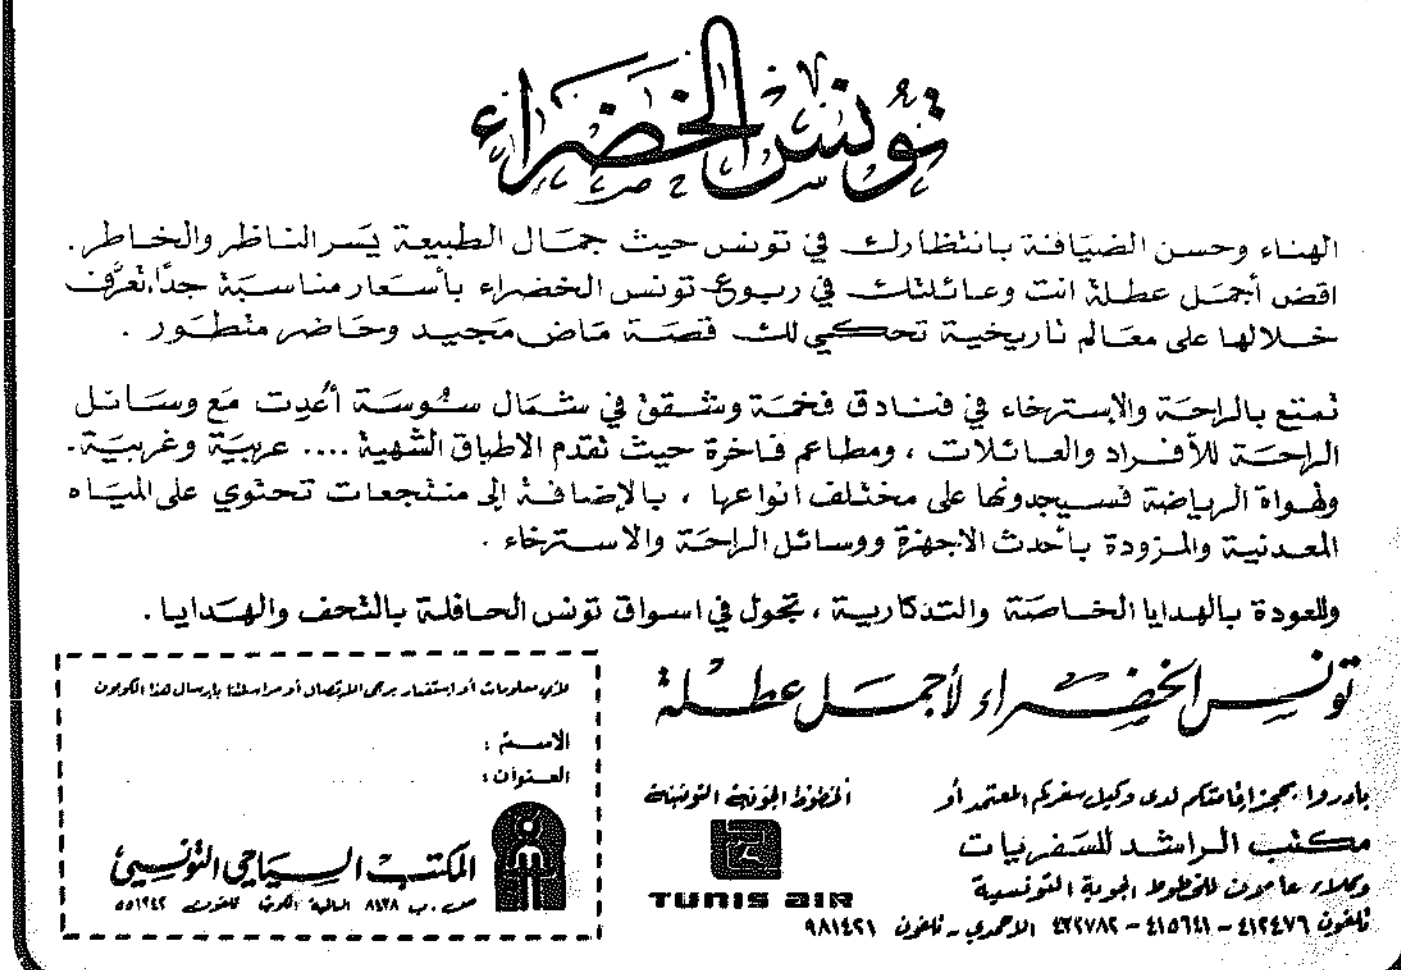 تونس الخضراء
الهناء وحسن الضيافة بانتظارك في تونس حيث جمال الطبيعة يسر الناظر والخاطر .
اقض أجمل عطلة انت وعائلتك في ربوع تونس الخضراء بأسعار مناسبة جدًا، تعرَّف
خلالها على معالم تاريخية تحكي لك قصة ماض مجيد وحاضر متطور .
تمتع بالراحة والاسترخاء في فنادق فخمة وشقق في شمال سوسة أعدت مع وسائل
الراحة للأفراد والعائلات ، ومطاعم فاخرة حيث تقدم الاطباق الشهية .... عربية وغربية .
ولهواة الرياضة فسيجدونها على مختلف انواعها ، بالإضافة إلى منتجعات تحتوي على المياه
المعدنية والمزودة بأحدث الاجهزة ووسائل الراحة والاسترخاء .
وللعودة بالهدايا الخاصة والتذكارية ، تجول في اسواق تونس الحافلة بالتحف والهدايا .
تونس الخضراء لأجمل عطلة
بادروا بحجز إقامتكم لدى وكيل سفركم المعتمد أو
مكتب الراشد للسفريات
وكلاء عامون للخطوط الجوية التونسية
تلفون ٤١٢٤٧٦ – ٤١٥٦٤١ – ٤٢٢٧٨٢ الاحمدي - تلفون ٩٨١٤٢١
الخطوط الجوية التونسية
TUNIS AIR
لأي معلومات أو استفسار يرجى الاتصال أو مراسلتنا بإرسال هذا الكوبون
الاسم :
العنوان :
المكتب السياحي التونسي
ص . ب ٨٤٣٨ السالمية الكويت تلفون ٥٥١٢٤٢